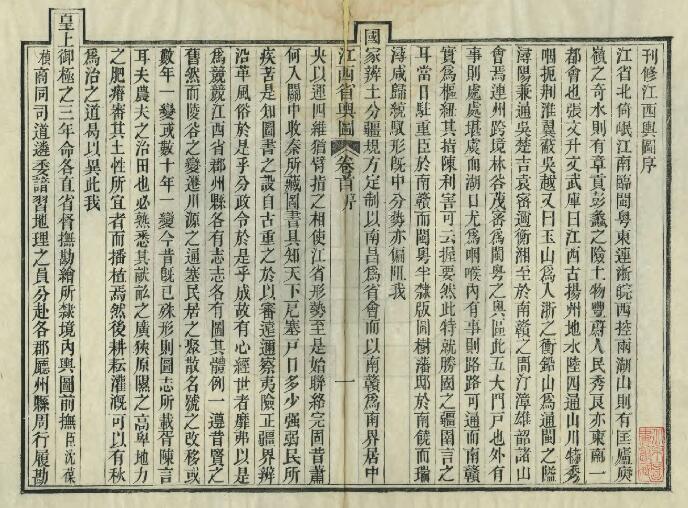 刊修江西輿圖序
江省北倚岷江南臨閩粵東連浙皖西控兩湖山則有匡廬庾
嶺之奇水則有章貢彭蠡之險土物豐蔚人民秀艮亦東南一
都會也張文升文武庫曰江西古揚州地水陸四通山川特秀
咽扼荆淮翼蔽吳越又曰玉山為人浙之衝鉛山為通閩之隘
潯陽兼通吳楚吉袁密邇衡湘至於南贛之間汀漳雄韶諸山
會焉連州跨境林谷茂密為閩粵之奧區此五大門戶也外有
事則處處堪虞而湖口尤為咽喉內有事則路路可通而南贛
實為樞紐其指陳利害可云握要然此特就勝國之疆圉言之
耳當日駐重臣於南贛而閩粵半隸版圖樹藩邸於南饒而瑞
潯咸歸統馭形旣中分勢亦偏阻我
國家辨土分疆規方定制以南昌為省會而以南贛為南界居中
江西省輿圖 卷首 序 一
央以運四維猶臂指之相使江省形勢至是始聯絡完固昔蕭
何人關中收秦所藏圖書具知天下阨塞戶口多少强弱民所
疾苦是知圖書之設自古重之於以審遠邇察夷險正疆界辨
沿革風俗於是乎分政令於是乎成故有心經世者靡弗以是
為競競江西省郡州縣各有志志各有圖其體例一遵昔賢之
舊然而陵谷之變遷川源之通塞民居之聚散名號之改移或
數年一變或數十年一變今昔旣已殊形則圖志所載胥陳言
耳夫農夫之治田也必熟悉其畎畝之廣狹原隰之高卑地力
之肥瘠審其土性所宜者而播植焉然後耕耘灌漑可以有秋
為治之道曷以異此我
皇上御極之三年命各直省督撫勘繪所隸境內輿圖前撫臣沈葆
楨商同司道遴委諳習地理之員分赴各郡廳州縣周行履勘